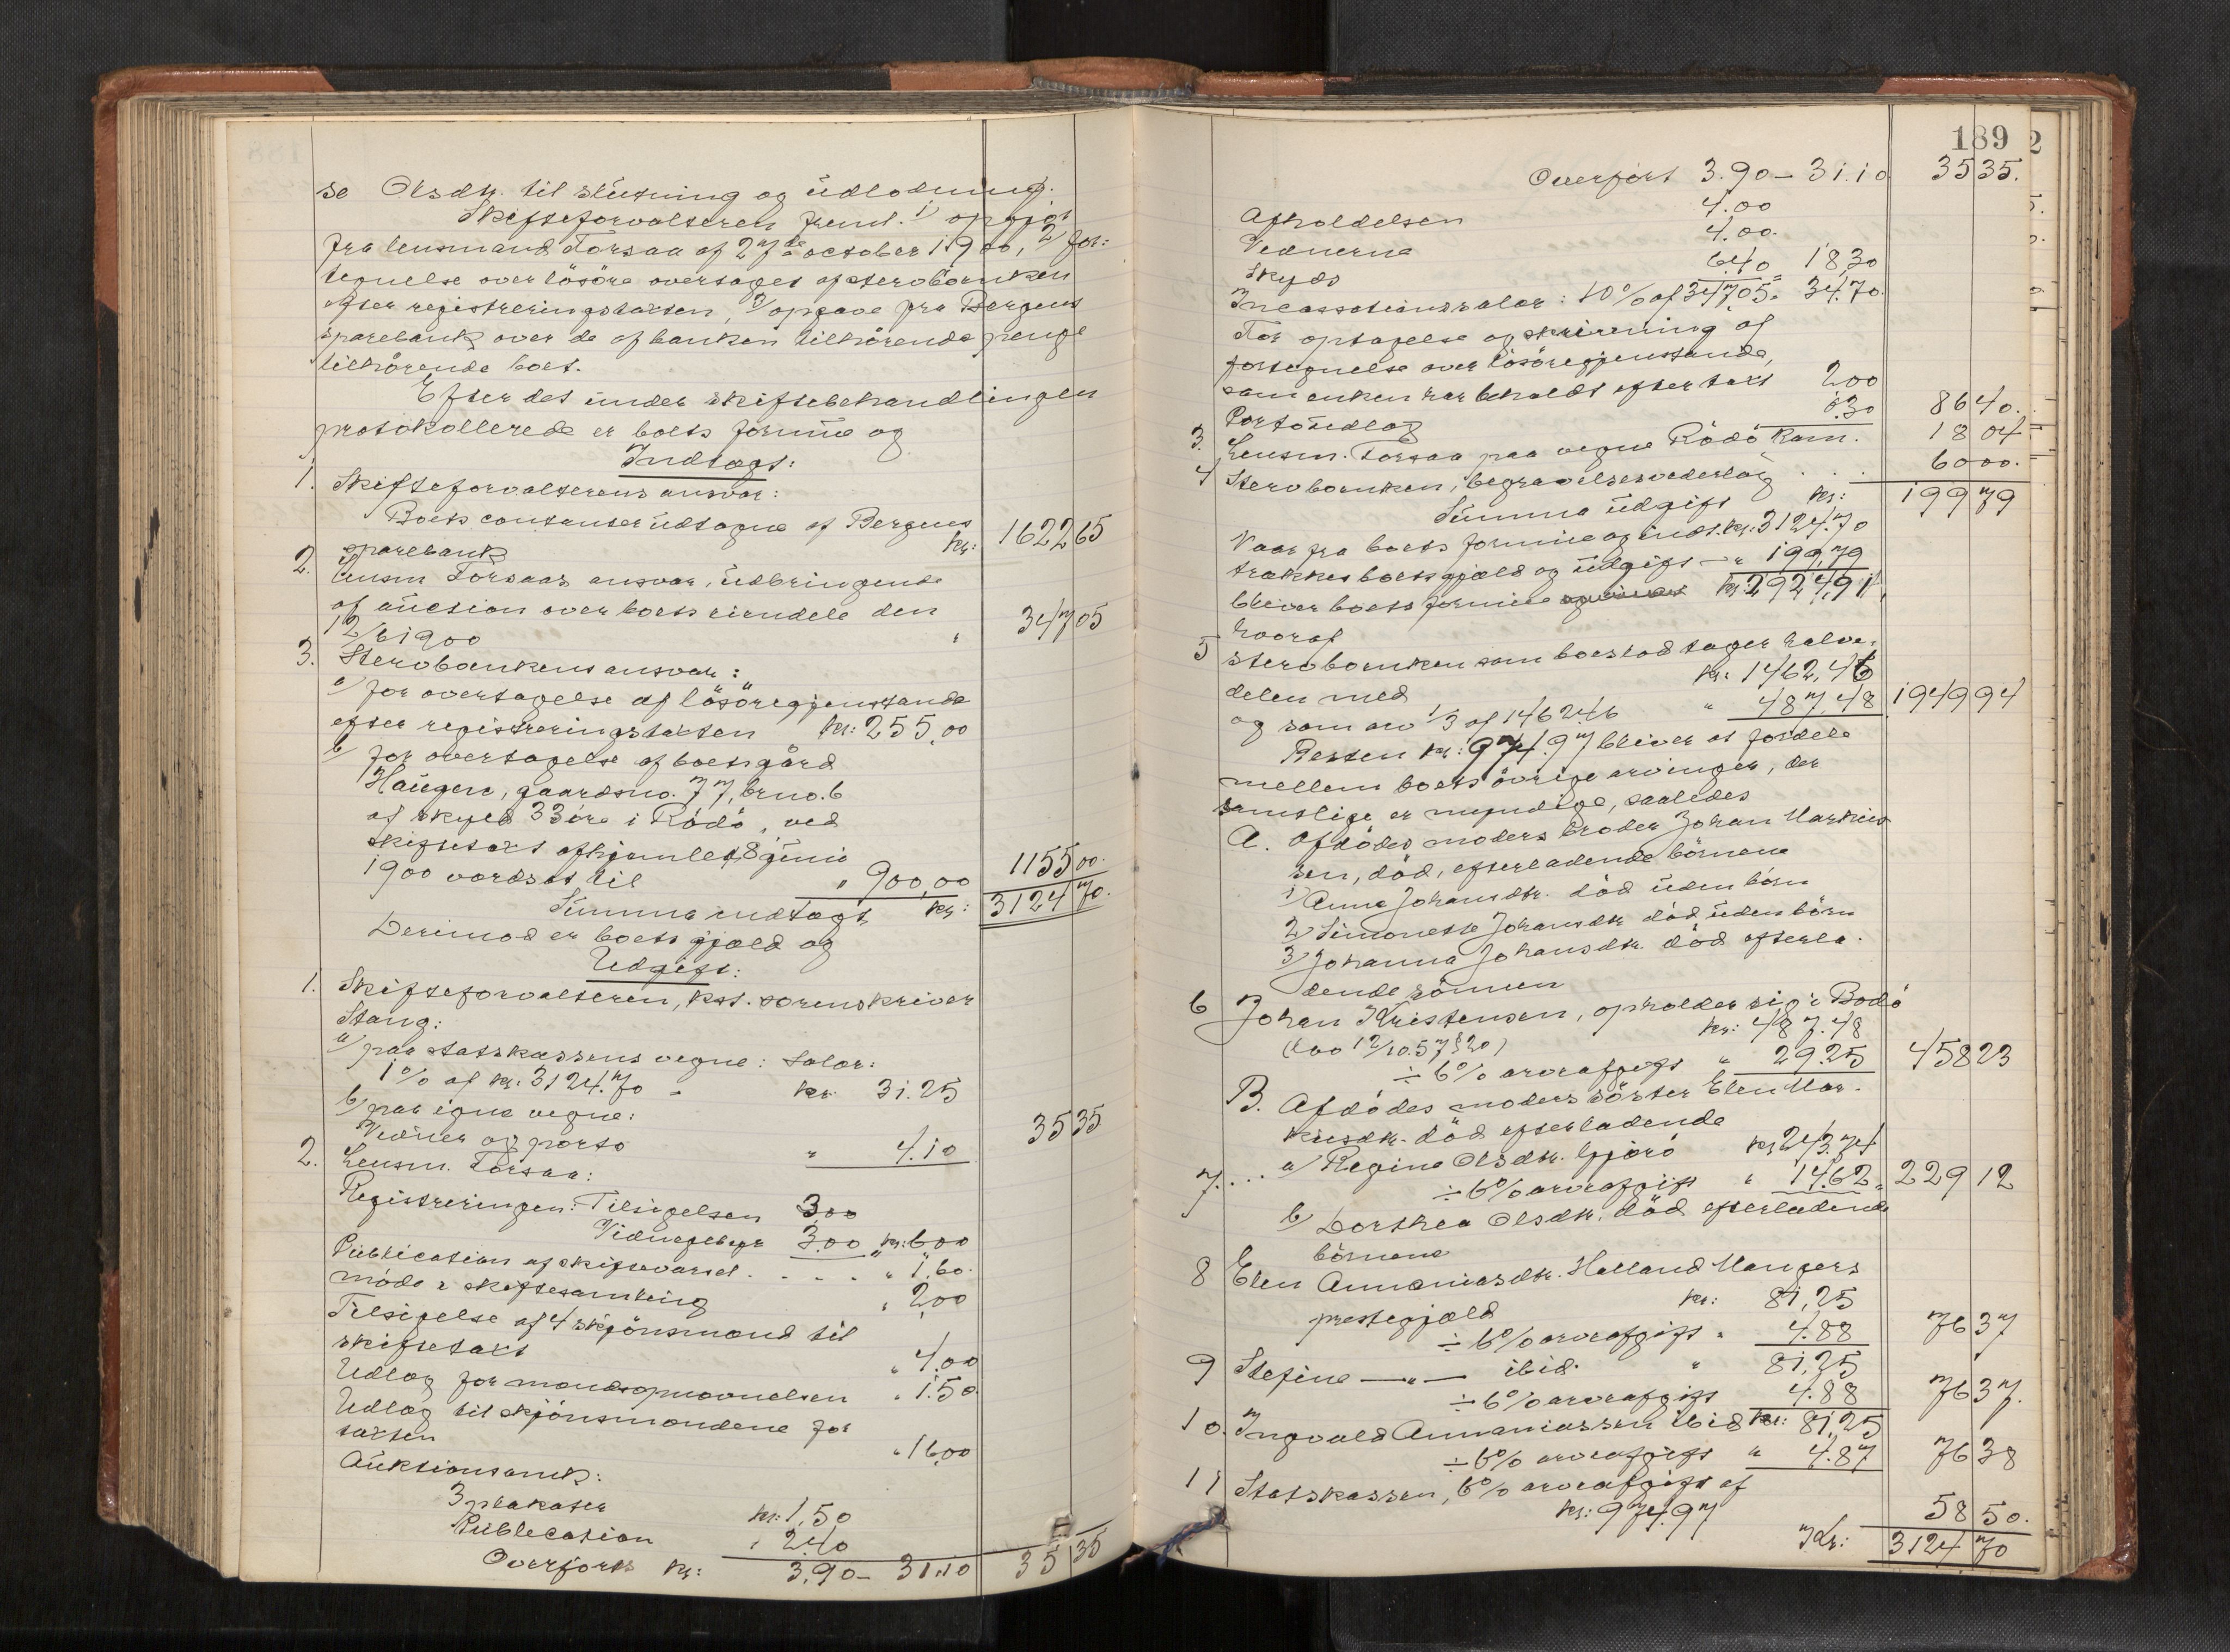 se Olsdtr. til slutning og udlodning.
Skifteforvalteren freml. 1) opgjør
fra lensmand Torsaa af 27de october 1900, 2) for:
tegnelse over løsøre overtaget af sterbboenken
efter registreringstaxten, 3) opgave fra Bergens
sparebank over de af banken tilhørende penge
tilhørende boet.
Efter det under skiftebehandlingen
protokollerede er boets formue og
Indtægt:
1. Skifteforvalterens ansvar:
Boets contanter udtagne af Bergens
sparebank kr: 1622 65
2. Lensm Torsaas ansvar, udbringende
af auction over boets eiendele den
12/6 1900 " 347 05
3. Sterbboenkens ansvar:
a) for overtagelse af løsøregjenstande
efter registreringstaxten kr: 255,00
b) for overtagelse af boets gård
Haugen, gaardsno. 77, brno. 6
af skyld 33 øre i Rødø, ved
skiftetaxt afhjemlet 8 juni
1900 værdsat til " 900,00 1155 00.
Summa indtægt, kr: 3124 70.
Derimod er boets gjæld og
Udgift:
1. Skifteforvalteren, kst. sorenskriver
Stang:
a) paa statskassens vegne: Salær:
1% af kr. 3124.70 " kr. 31.25
b) paa egne vegne:
Vidner og porto " 4.10 35 35
2. Lensm. Torsaa:
Registreringen: Tilsigelsen 3,00
Vidnegebyr 3,00 " kr: 6.00
Publication af skiftevarsel . . . . " 1.60.
møde i skiftesamling " 2,00
Tilsigelse af 4 skjønsmænd til
skiftetaxt " 4,00
Udlæg for mandsopnævnelsen " 1.50.
Udlæg til skjønsmændene for
taxten " 16,00
Auktionsomk:
3 plakater kr: 1,50
Publication " 2.40
Overført kr: 3.90 – 31.10 35 35
189
Overført 3.90 – 31.10 35 35.
Afholdelsen 4.00
Vidnerne 4.00.
Skyds 6.40 " 18,30
Incassationssalær: 10% af 347,05 " 34.70.
For optagelse og skrivning af
fortegnelse over løsøregjenstande,
som enken har beholdt efter taxt 2.00
Portoudlæg 0.30 86 40.
3. Lensm. Torsaa paa vegne Rødø kom. 18 04
4 Sterbboenken, begravelsesvederlag . . . 60 00.
Summa udgift kr: 199 79
Naar fra boets formue og indt. kr: 3124.70
trækkes boets gjæld og udgift — " 199,79
bliver boets formue kr: 2924,91,
hvoraf
5 sterbboenken som boeslod tager halve-
delen med kr: 1462,46
og som arv 1/3 af 1462.46 " 487,48 1949 94
Resten kr: 974.97 bliver at fordele
mellem boets øvrige arvinger, der
samtlige er myndige, saaledes
A. Afdødes moders broder Johan Markus-
sen, død, efterladende børnene
1) Anna Johansdtr. død uden børn
2) Simonette Johansdtr død uden børn
3) Johanna Johansdtr. død efterla-
dende sønnen
6 Johan Kristensen, opholder sig i Bodø
(Lov 12/10.57 § 20) kr: 487.48
÷ 6% arveafgift " 29.25 458 23
B. Afdødes moders søster Elen Mar-
kusdtr. død efterladende
a) Regine Olsdtr. Gjørø kr 243.74
7. . . . ÷ 6% arveafgift " 14.62 " 229 12
b) Dorthea Olsdtr. død efterladende
børnene
8 Elen Annaniasdtr. Helland Mangers
prestegjæld kr: 81,25
÷ 6% arveafgift " 4.88 76 37
9 Stefine —"— ibid. " 81,25
÷ 6% arveafgift 4.88 76 37.
10. Ingvald Annaniassen ibid kr: 81,25
÷ 6% arveafgift " 4.87 76 38
11 Statskassen, 6% arveafgift af
kr: 974.97 58 50.
Idr: 3124 70